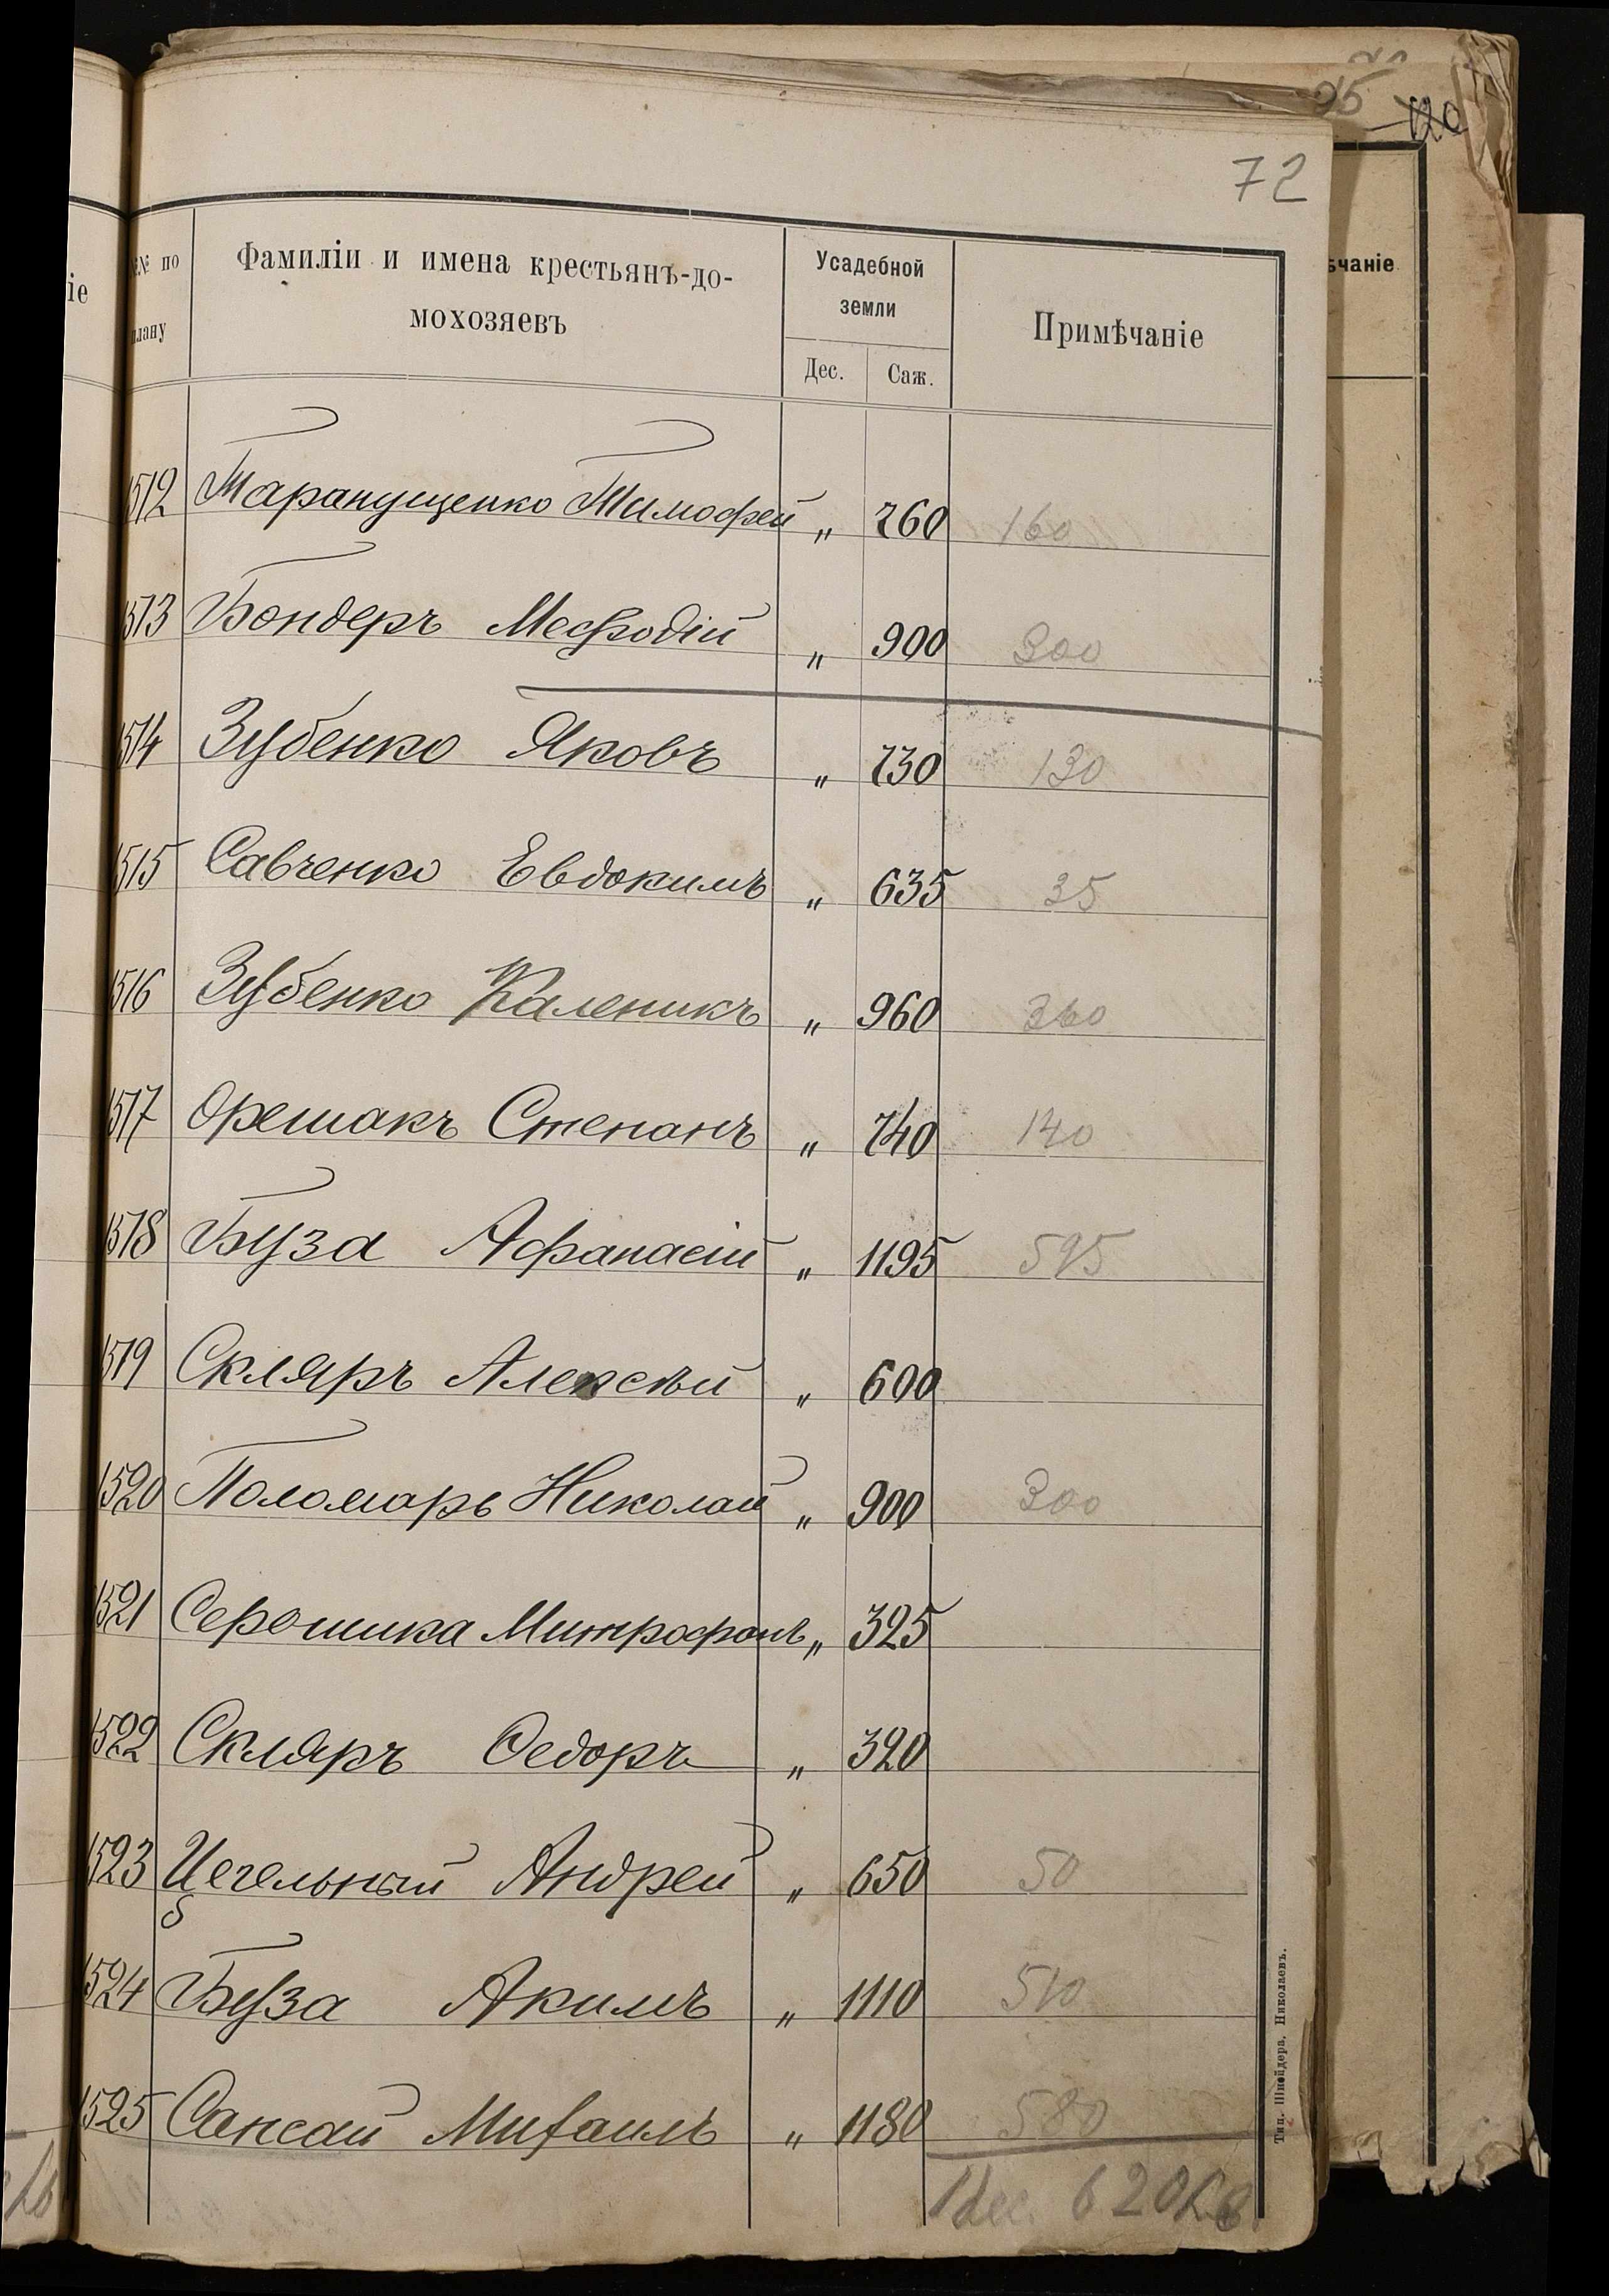 95 120
72
іе
№ по плану
Фамиліи и имена крестьянъ-до-
мохозяевъ
Усадебной
земли
Дес. Саж.
Примѣчаніе
ѣчаніе
1512 Таранущенко Тимофей „ 760 160
1513 Бондеръ Мефодій „ 900 300
1514 Зубенко Яковъ „ 730 130
1515 Савченко Евдокимъ „ 635 35
1516 Зубенко Каленикъ „ 960 360
1517 Орешакъ Степанъ „ 740 140
1518 Буза Афанасій „ 1195 595
1519 Скляръ Алексѣй „ 600
1520 Поломарь Николай „ 900 300
1521 Серошика Митрофанъ „ 325
1522 Скляръ Ѳедоръ „ 320
1523 Цегельный Андрей „ 650 50
1524 Буза Акимъ „ 1110 510
1525 Сансай Михаилъ „ 1180 580
1 дес. 620
Тип. Шнейдера, Николаевъ.